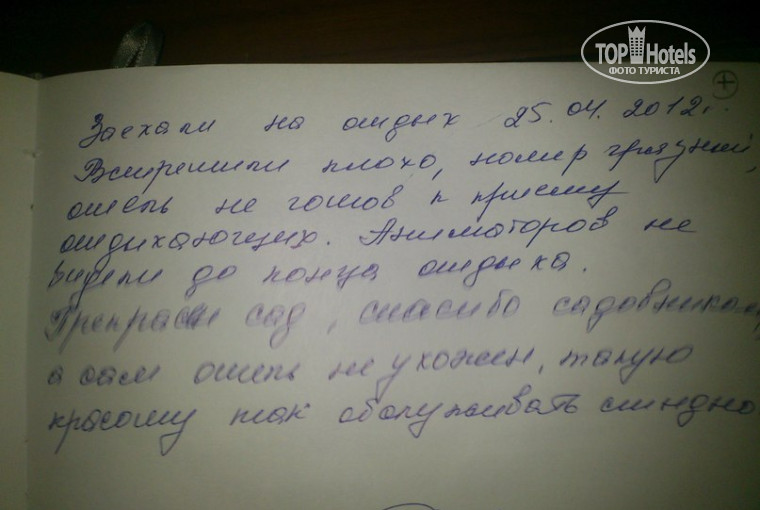 TOP Hotels
ФОТО ТУРИСТА
Заехали на отдых 25.04.2012г.
Встретили плохо, номер грязный,
отель не готов к приему
отдыхающих. Аниматоров не
видели до конца отдыха.
Прекрасн сад, спасибо садовникам,
а сам отель не ухожен, такую
красоту так обслуживать стыдно